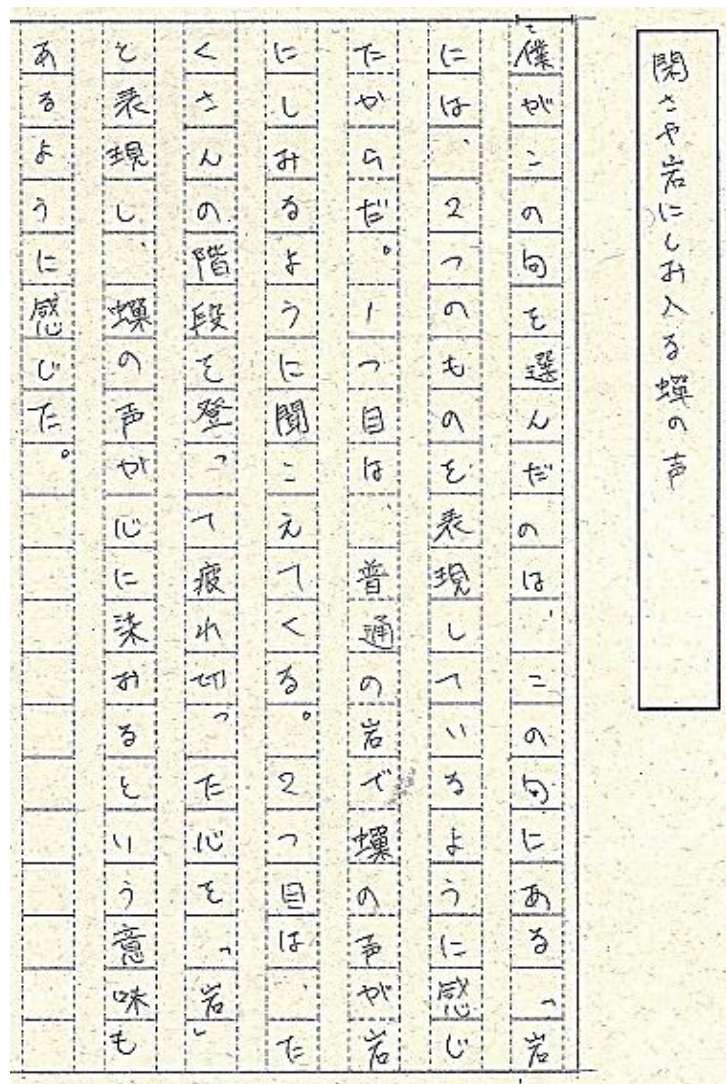 閑さや岩にしみ入る蝉の声
僕がこの句を選んだのは、この句にある「岩
には、2つのものを表現しているように感じ
たからだ。1つ目は 普通の岩で蝉の声が岩
にしみるように聞こえてくる。2つ目は、た
くさんの階段を登って疲れ切った心を「岩」
と表現し、蝉の声が心に染みるという意味も
あるように感じた。